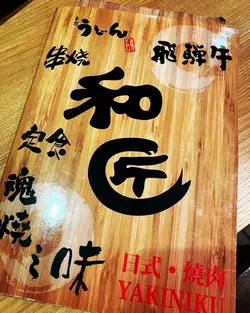 うどん
串焼
飛騨牛
和匠
定食
魂燒之味
日式・燒肉
YAKINIKU